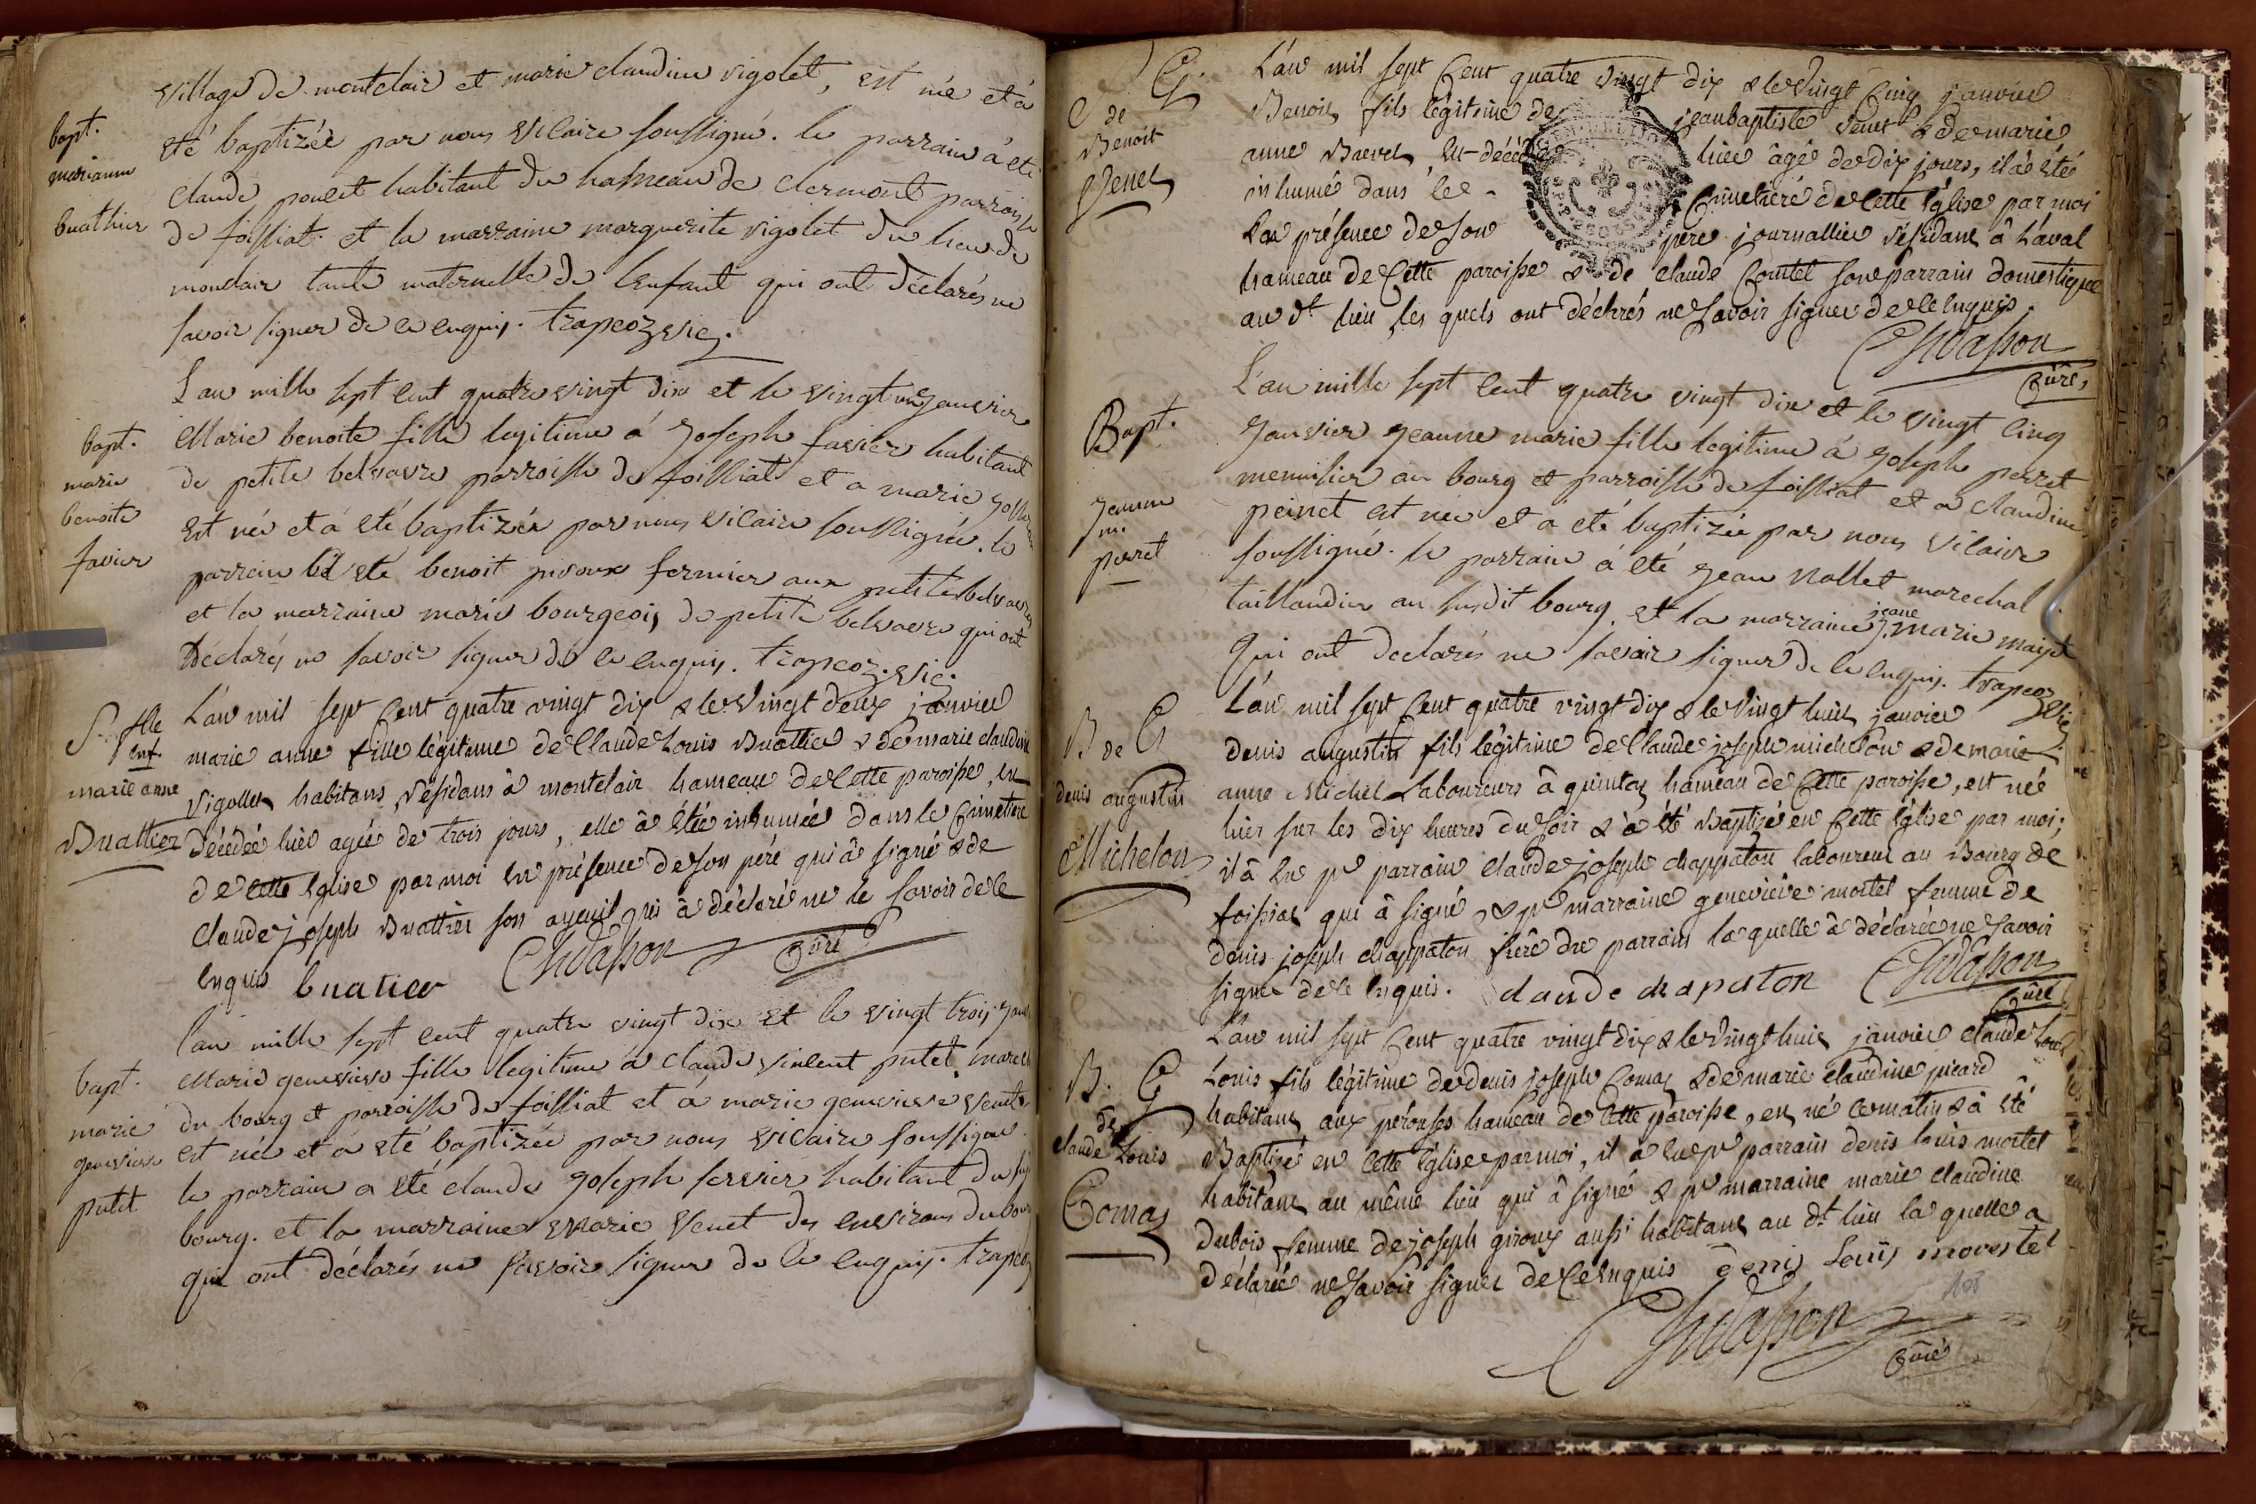 village de montclair et marie claudine vigolet, est née et a
bapt.
marianne
buathier
été baptizée par nous vicaire soussigné. le parrain à été
claude poncet habitant du hasmeau de clermont parroisse
de foissiat et la marraine marguerite vigolet du lieu de
monclair tante maternelle de lenfant qui ont déclarés ne
savoir signer de ce enquis. trapeoz vic.
L'an mille sept cent quatre vingt dix et le vingt un janvier
bapt.
marie
benoite
favier
Marie benoite fille legitime à joseph favier habitant
de petite belvavre parroisse de foissiat et a marie
est née et à été baptizée par nous vicaire soussigné. le
parrain a été benoit pivoux fermier aux petites belvavres
et la marraine marie bourgeois de petite belvavre qui ont
Declarés ne savoir signer de ce enquis. trapeoz. vic.
S. fille
enf.
marie anne
Buattier
L'an mil sept Cent quatre vingt dix & le vingt deux janvier
marie anne fille légitime de Claude Louis Buattier & de marie claudine
vigollet habitans résidans à montclair hameau de Cette paroisse, est
décédée hièr agée de trois jours, elle à étée inhumée dans le Cimetiere
de Cette Eglise par moi en présence de son pére qui à signé & de
claude joseph Buattier son ayeuil qui à déclaré ne le savoir de ce
enquis buatier Chidasson Curé
L'an mille sept cent quatre vingt dix et le vingt trois janv
bapt.
marie
genevieve
putet
Marie genevieve fille legitime à claude vincent putet marech
du bourg et parroisse de foissiat et a marie genevieve venet
est née et à été baptizée par nous vicaire soussigné.
le parrain a été claude joseph fervier habitant du
bourg. et la marraine marie venet des environs du bour
qui ont déclarés ne savoir signer de ce enquis. trapeoz
S. G.
de
Benoit
Venet
L'an mil sept Cent quatre vingt dix & le vingt Cinq janvier
Benoit, fils légitime de jean baptiste venet & de marie
anne Buevet est décédé hièr âgé de dix jours, il à été
inhumé dans le Cimetiere de Cette Eglise par moi
En présence de son pere journallier résidant à Laval
hameau de Cette paroisse & de claude Comtet son parrain domestique
au dt. lieu, les quels ont déclarés ne savoir signer de ce enquis.
Chidasson
Curé
L'an mille sept cent quatre vingt dix et le vingt cinq
Bapt.
jeanne
m.
perret
janvier jeanne marie fille legitime à joseph perret
menuisier au bourg et parroisse de foissiat et a claudine
peinet est née et a été baptizée par nous vicaire
soussigné. le parrain à été jean nallet marechal
taillandier au susdit bourg. et la marraine jeane marie
Qui ont declarés ne savoir signer de ce enquis. trapeoz vic.
B de G
denis augustin
Michelon
L'an mil sept Cent quatre vingt dix & le vingt huit janvier
denis augustin fils légitime de Claude joseph michelon & de marie
anne Michel Laboureurs à quintas hameau de Cette paroisse, est né
hier sur les dix heures du soir & à été Baptizé en Cette Eglise par moi;
il à Eu pr. parrain Claude joseph chappaton laboureur au Bourg de
foissiat qui à signé, & pr. marraine genevieve mortel femme de
denis joseph chappaton frére du parrain la quelle à déclarée ne savoir
signer de ce Enquis. claude chapaton Chidasson
Curé
L'an mil sept Cent quatre vingt dix & le vingt huit janvier claude Louis
B. G
de
claude Louis
Comas
Louis fils légitime de denis joseph Comas & de marie claudine picard
habitans aux perouses hameau de Cette paroisse, est né Ce matin & à été
Baptizé en Cette Eglise par moi, il à Eu pr parrain denis louis mortel
habitant au même lieu qui à signé & pr marraine marie claudine
Dubois femme de joseph giroux aussi habitant au dt. lieu la quelle a
Déclarée ne savoir signer de Ce Enquis denis Louis morestel
Chidasson
Curé